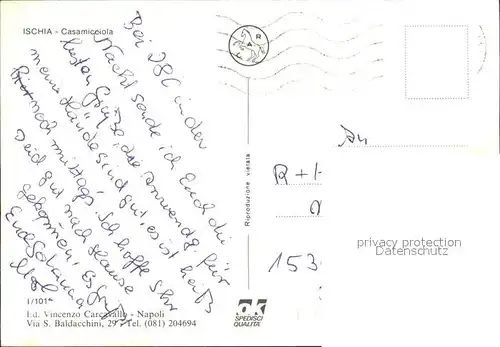 ISCHIA - Casamicciola
Bei 28C in der
Nacht sende ich Euch die
besten Grüße, die Anwendg. für
meine Hände sind gut, es ist heiß
hier nachmittags. Ich hoffe Ihr
seid gut nach Hause
gekommen! Es
Eure
An
R + H
153
Riproduzione vietata
1/101
Ed. Vincenzo Carcavallo - Napoli
Via S. Baldacchini, 29 - Tel. (081) 204694
ok
SPEDISCI
QUALITA'
privacy protection
Datenschutz